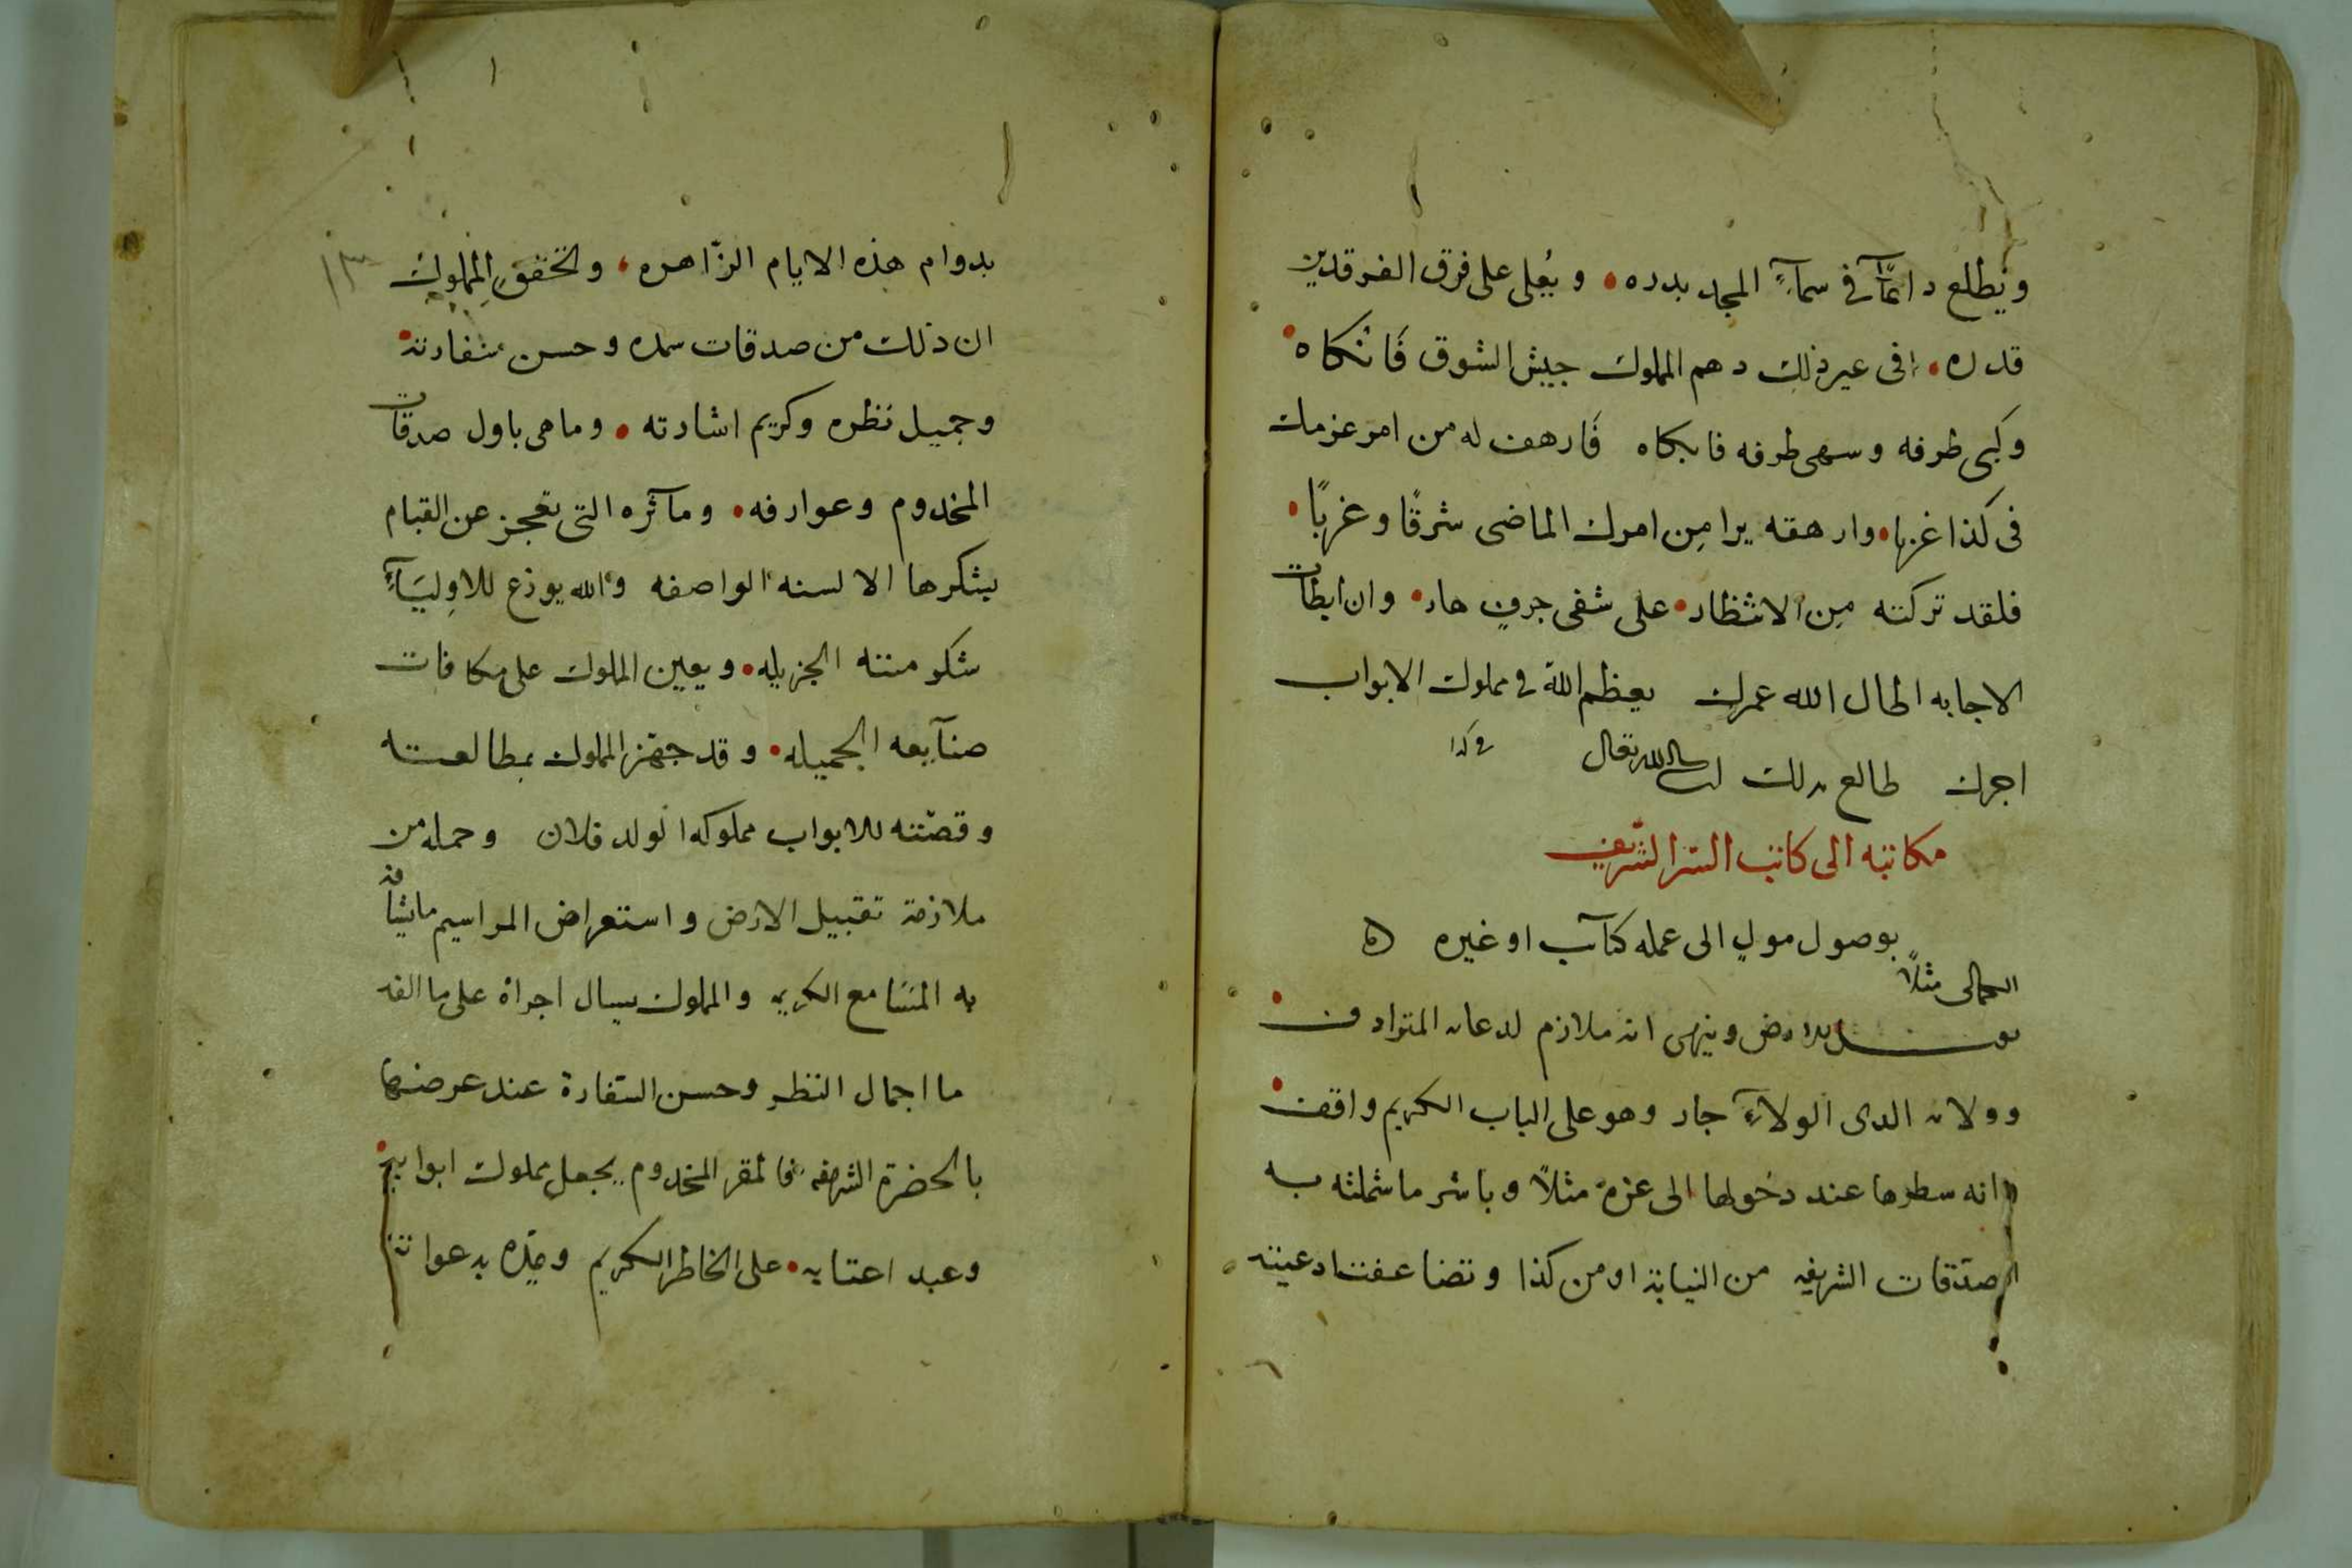 ويطلع دائمًا في سمآءِ المجد بدره • ويُعلى على فرق الفرقدين
قدره • وفى غير ذلك دهم المملوك جيش الشوق فَانْكاه •
وكبى طرفه وسهى طرفه فابكاه فَارهف له من امر عزمات
فى كذا غربا • وارهقه يرا مِن امرك الماضى شرقًا وغربًا •
فلقد تركته مِن الانتظار • على شفى جرفٍ هار • وان ابطات
الاجابه اطال الله عمرك يعظم الله فى مملوك الابواب
اجرك طالع بذلك ان شا الله تعالى فى كذا
مكاتبه الى كاتب السّر الشّريف
بوصول مولٍ الى عمله كتآب او غيره
الجمالى مثلاً
يقبـــل الارض وينهى انه ملازم لدعائه المترادف •
وولائه الدى الولآءِ جار وهو على الباب الكريم واقف •
وانه سطرها عند دخولها الى غزة مثلاً وباشر ما شملته به
الصدقات الشريفه من النيابة او من كذا وتضاعفت ادعيته
بدوام هذه الايام الزّاهره، وتحقق المملوك ١٣
ان ذلك من صدقات سيده وحسن سفارته •
وجميل نظره وكريم اشارته • وما هى باول صدقات
المخدوم وعوارفه • ومآثره التى تعجز عن القيام
بشكرها الالسنه الواصفه والله يوزع للاوليآءِ
شكر مننه الجزيله • ويعين المملوك على مكافات
صنآيعه الجميله • وقد جهّز المملوك بمطالعته
وقصّته للابواب مملوكه الولد فلان وحمله من
ملازمة تقبيل الارض واستعراض المراسيم ما يشافه
به المسَامع الكريمه والمملوك يسال اجراه على ما الفه
ما اجمال النظر وحسن السّفارة عند عرضها
بالحضرة الشريفه فالمقر المخدوم يجعل مملوك ابوابه •
وعبد اعتابه • على الخاطر الكريم ويمدّه بدعواته